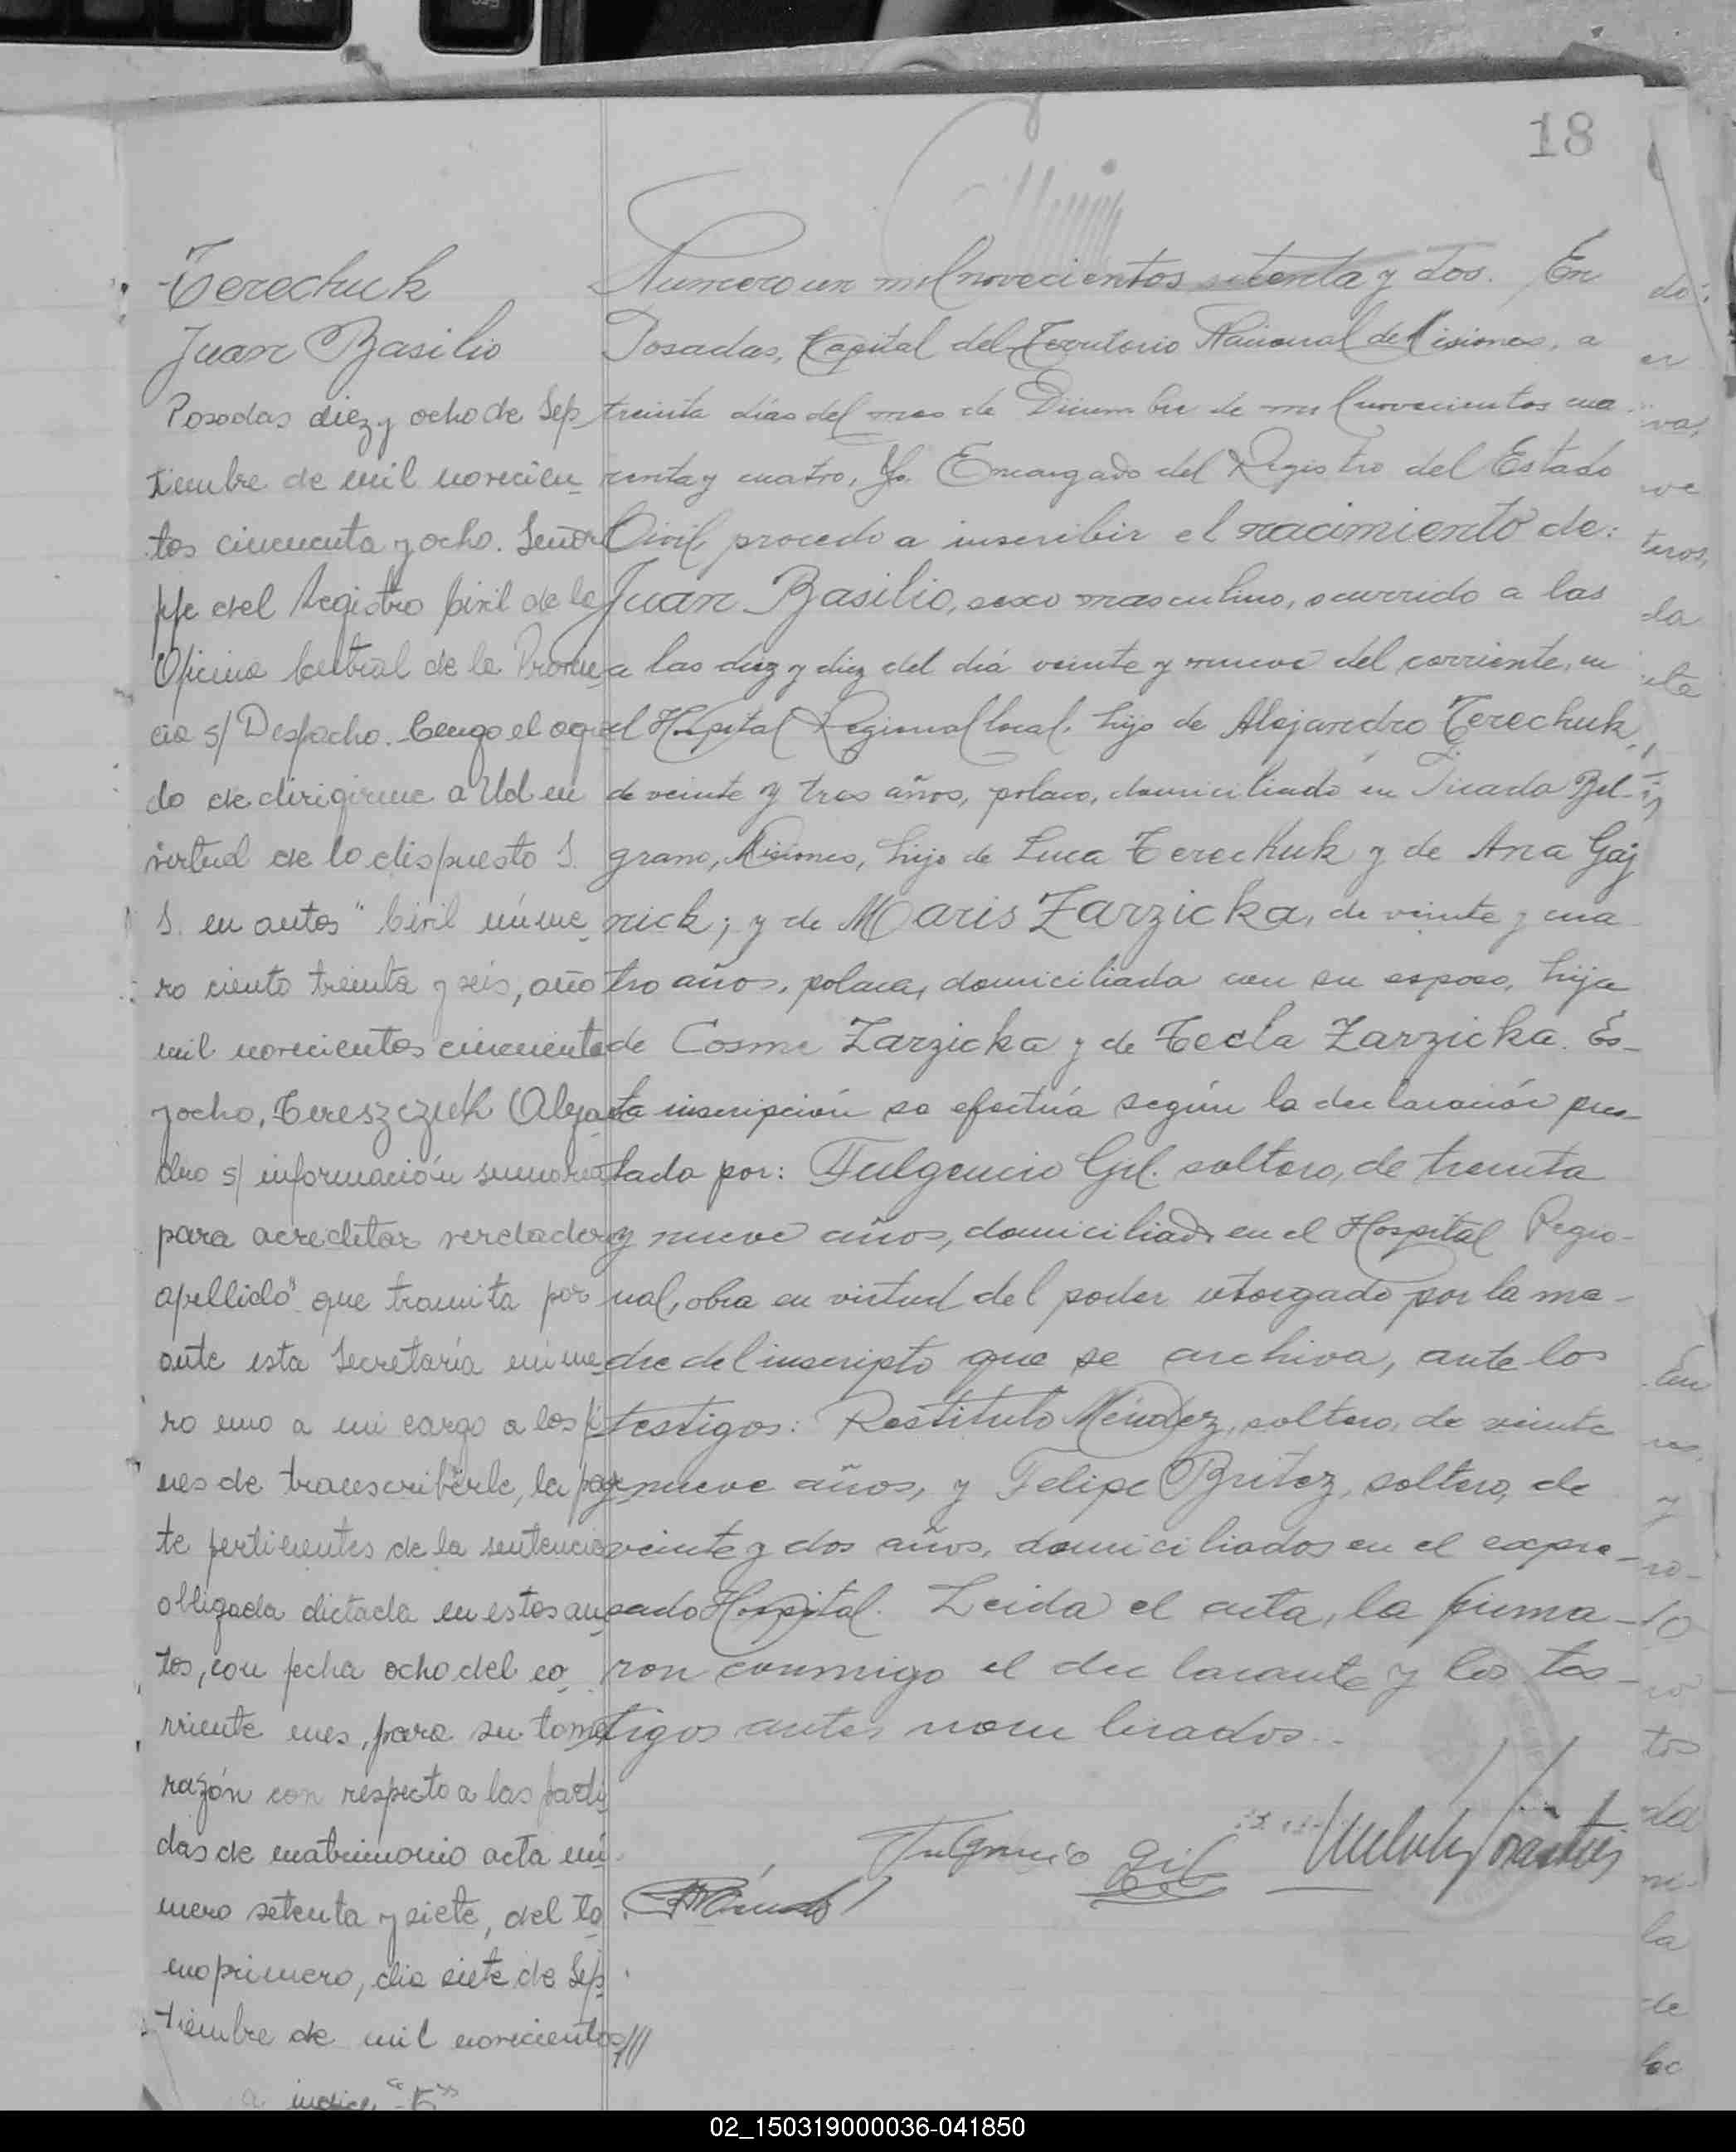 18
Terechuk
Juan Basilio
Posadas diez y ocho de Sep
tiembre de mil novecien-
tos cincuenta y ocho. Señor
jefe del Registro Civil de la
Oficina Central de la Provin-
cia s/ Despacho. Tengo el agra
do de dirigirme a Ud en
virtud de lo dispuesto S.
S. en autos "Civil núme-
ro ciento treinta y seis, año
mil novecientos cincuenta
y ocho, Tereszczuk Alejan
dro s/ información sumaria
para acreditar verdadero
apellido" que tramita por
ante esta Secretaría núme-
ro uno a mi cargo a los fi
nes de transcribirle, la par
te pertinentes de la sentencia
obligada dictada en estos au-
tos, con fecha ocho del co-
rriente mes, para su toma
razón con respecto a las parti
das de matrimonio acta nú-
mero setenta y siete, del to
mo primero, dia siete de Sep
tiembre de mil novecientos ///
indice "T"
Numero un mil novecientos setenta y dos. En
Posadas, Capital del Territorio Nacional de Misiones, a
treinta días del mes de Diciembre de mil novecientos cua
renta y cuatro, Yo. Encargado del Registro del Estado
Civil, procedo a inscribir el nacimiento de:
Juan Basilio, sexo masculino, ocurrido a las
a las diez y diez del día veinte y nueve del corriente, en
el Hospital Regional local, hijo de Alejandro Terechuk,
de veinte y tres años, polaco, domiciliado en Picada Bel-
grano, Misiones, hijo de Luca Terechuk y de Ana Gaj
nick; y de Maris Zarzicka, de veinte y cua
tro años, polaca, domiciliada con su esposo, hija
de Cosme Zarzicka y de Tecla Zarzicka. Es-
ta inscripción se efectúa según la declaración pres-
tada por: Fulgencio Gil. soltero, de treinta
y nueve años, domiciliado en el Hospital Regio-
nal, obra en virtud del poder otorgado por la ma-
dre del inscripto que se archiva, ante los
testigos: Restituto Méndez, soltero, de veinte
y nueve años, y Felipe Britez, soltero, de
veinte y dos años, domiciliados en el expre-
sado Hospital. Leida el acta, la firma-
ron conmigo el declarante y los tes-
tigos antes nombrados.
Fulgencio Gil
02_150319000036-041850